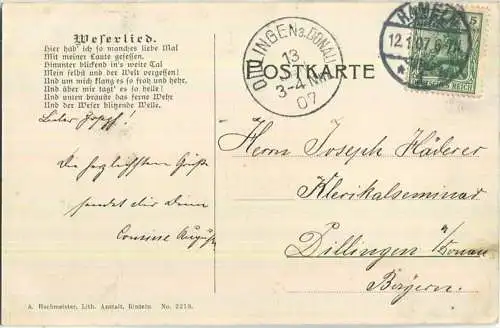 Weserlied.
Hier hab' ich so manches liebe Mal
Mit meiner Laute gesessen,
Hinunter blickend in's weite Tal
Mein selbst und der Welt vergessen!
Und um mich klang es so froh und hehr,
Und über mir tagt' es so helle!
Und unten brauste das ferne Wehr
Und der Weser blitzende Welle.
DILLINGEN a. DONAU
13
3-4
07
POSTKARTE
HAMELN
12.1.07.6-7N.
5
REICH
Lieber
Die herzlichsten Grüße
sendet dir dein
Cousine
Herrn Joseph Häderer
Klerikalseminar
Dillingen a/Donau
Bayern.
A. Hachmeister, Lith. Anstalt, Rinteln. No. 2218.